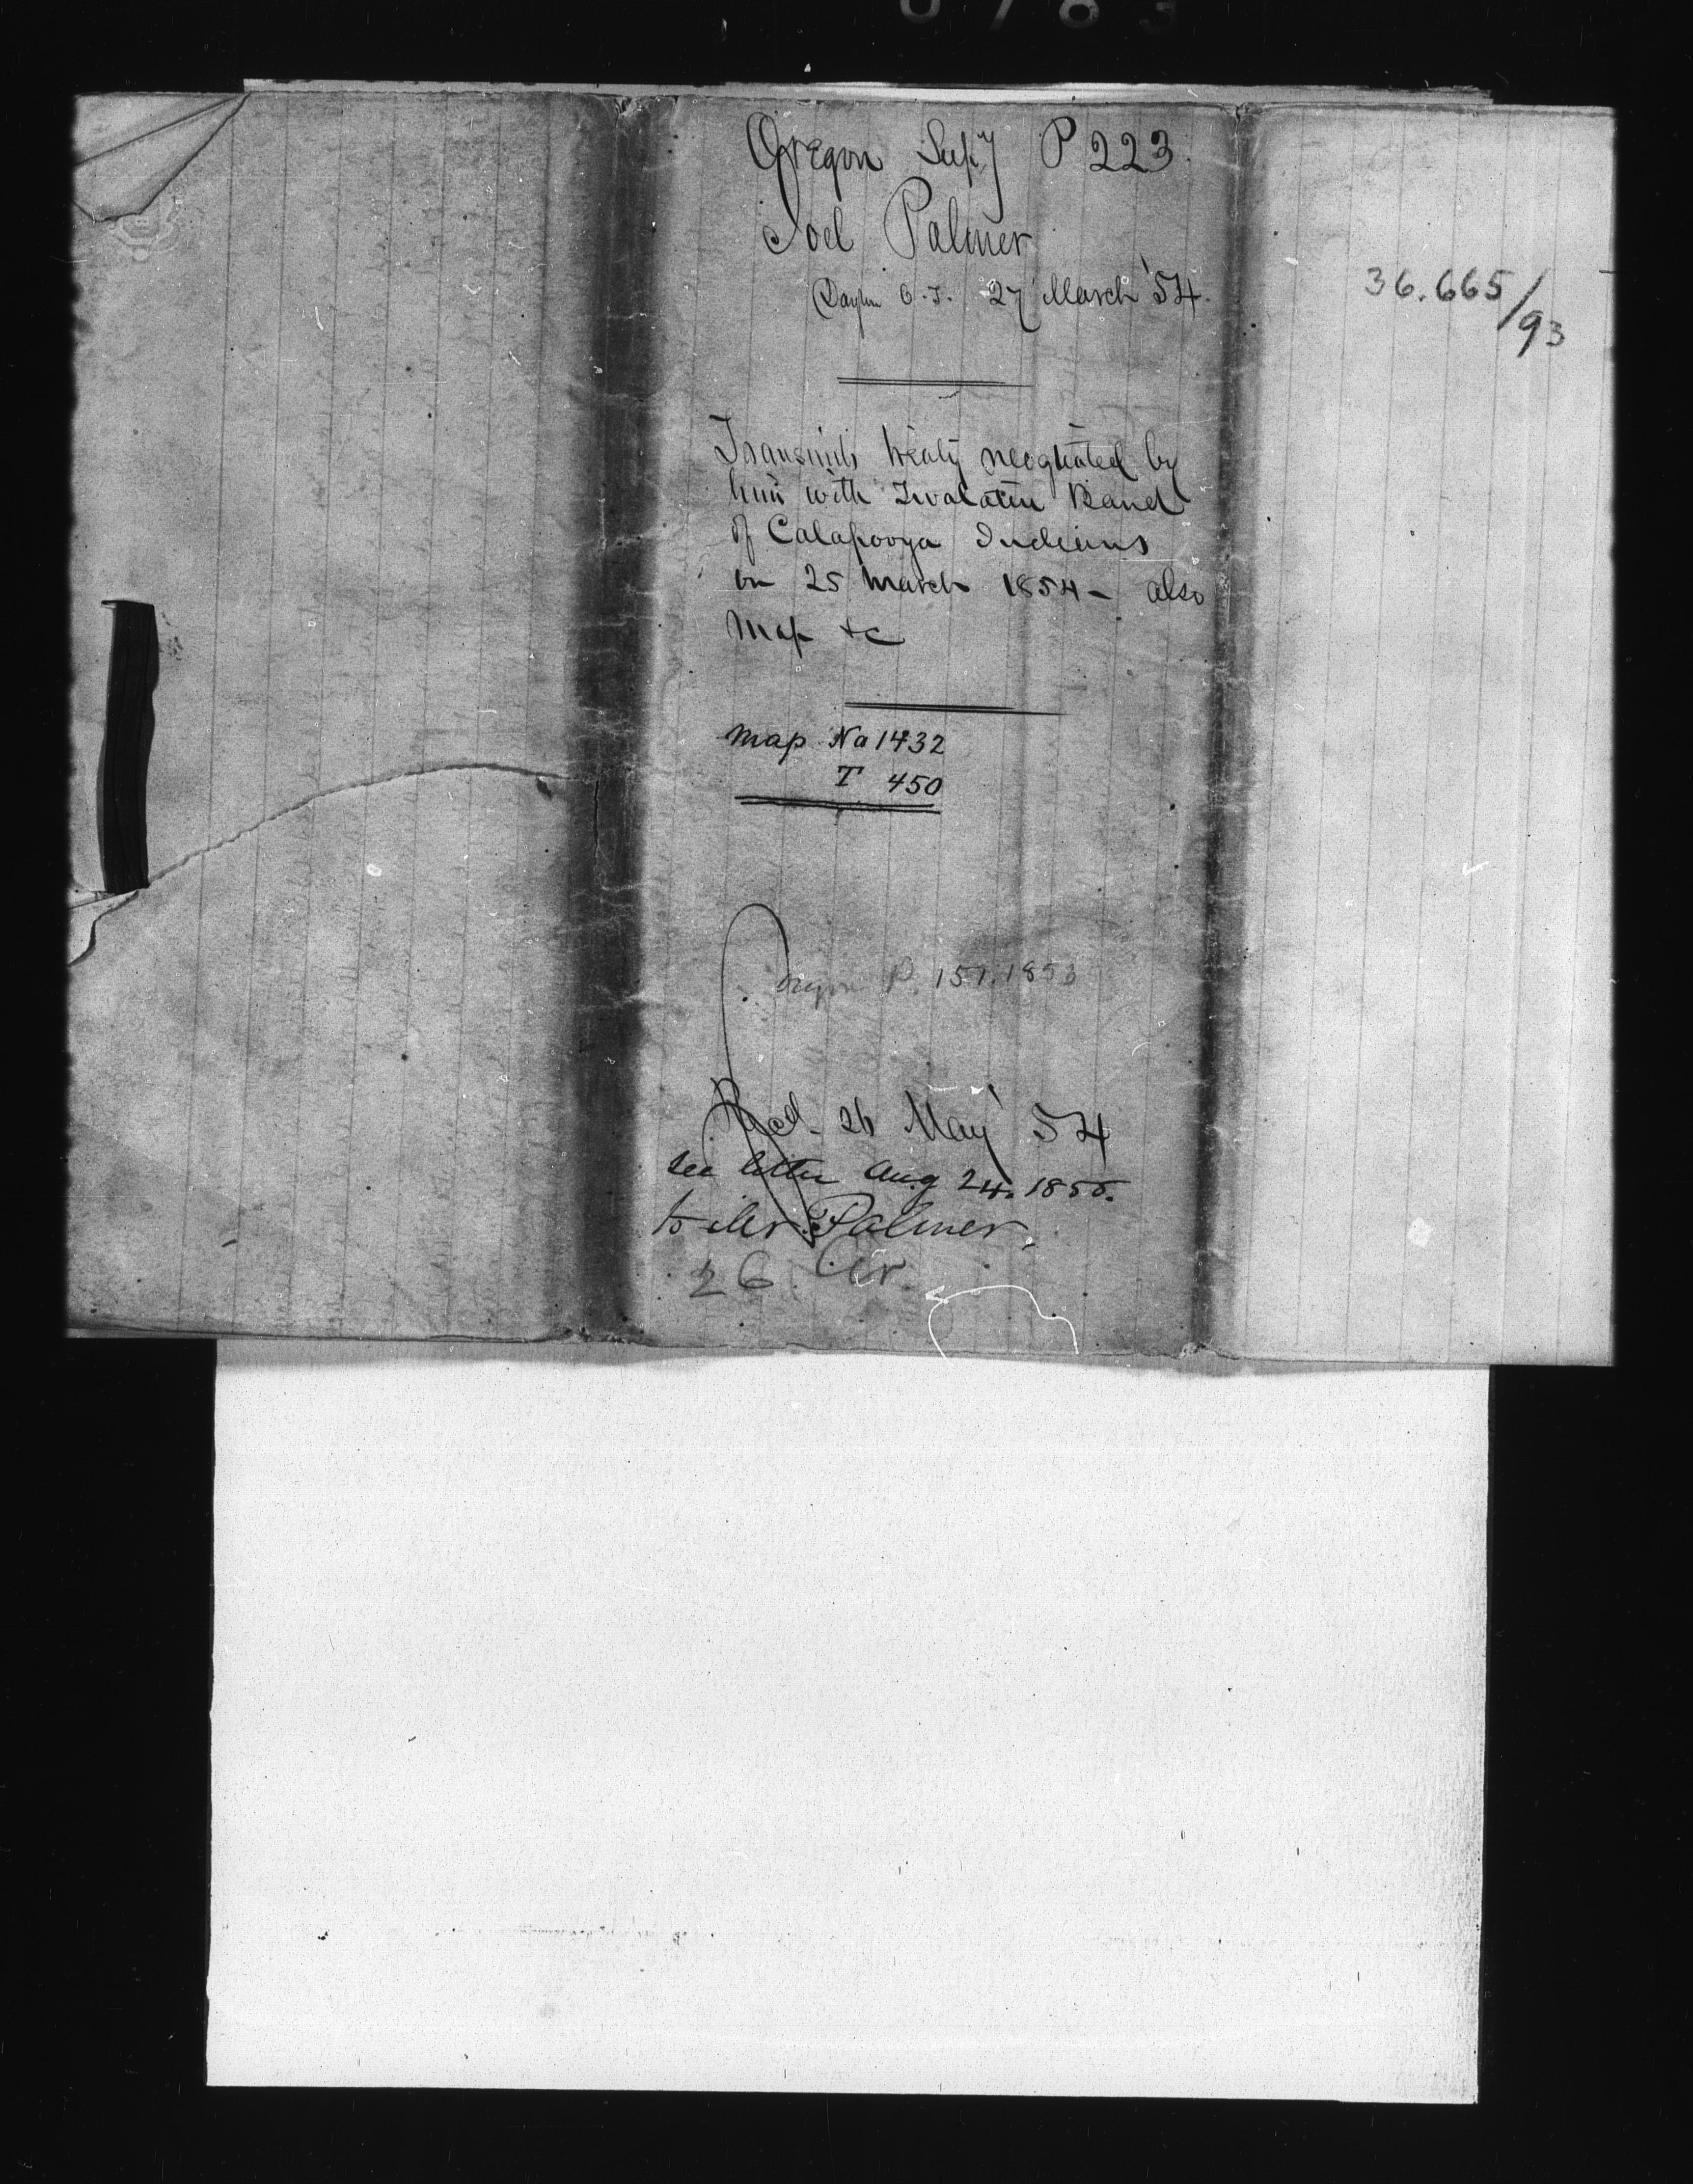 Oregon Supy P 223.
Joel Palmer
Dayton O.T. 27 March '54.
Transmits treaty neogtiated by
him with Twalatin Band
of Calapooya Indians
on 25 March 1854 - also
Map &c
Map No 1432
T 450
Oregon P. 151. 1853
Recd. 26 May '54
See letter Aug 24. 1855.
to Mr Palmer.
26
36.665/93